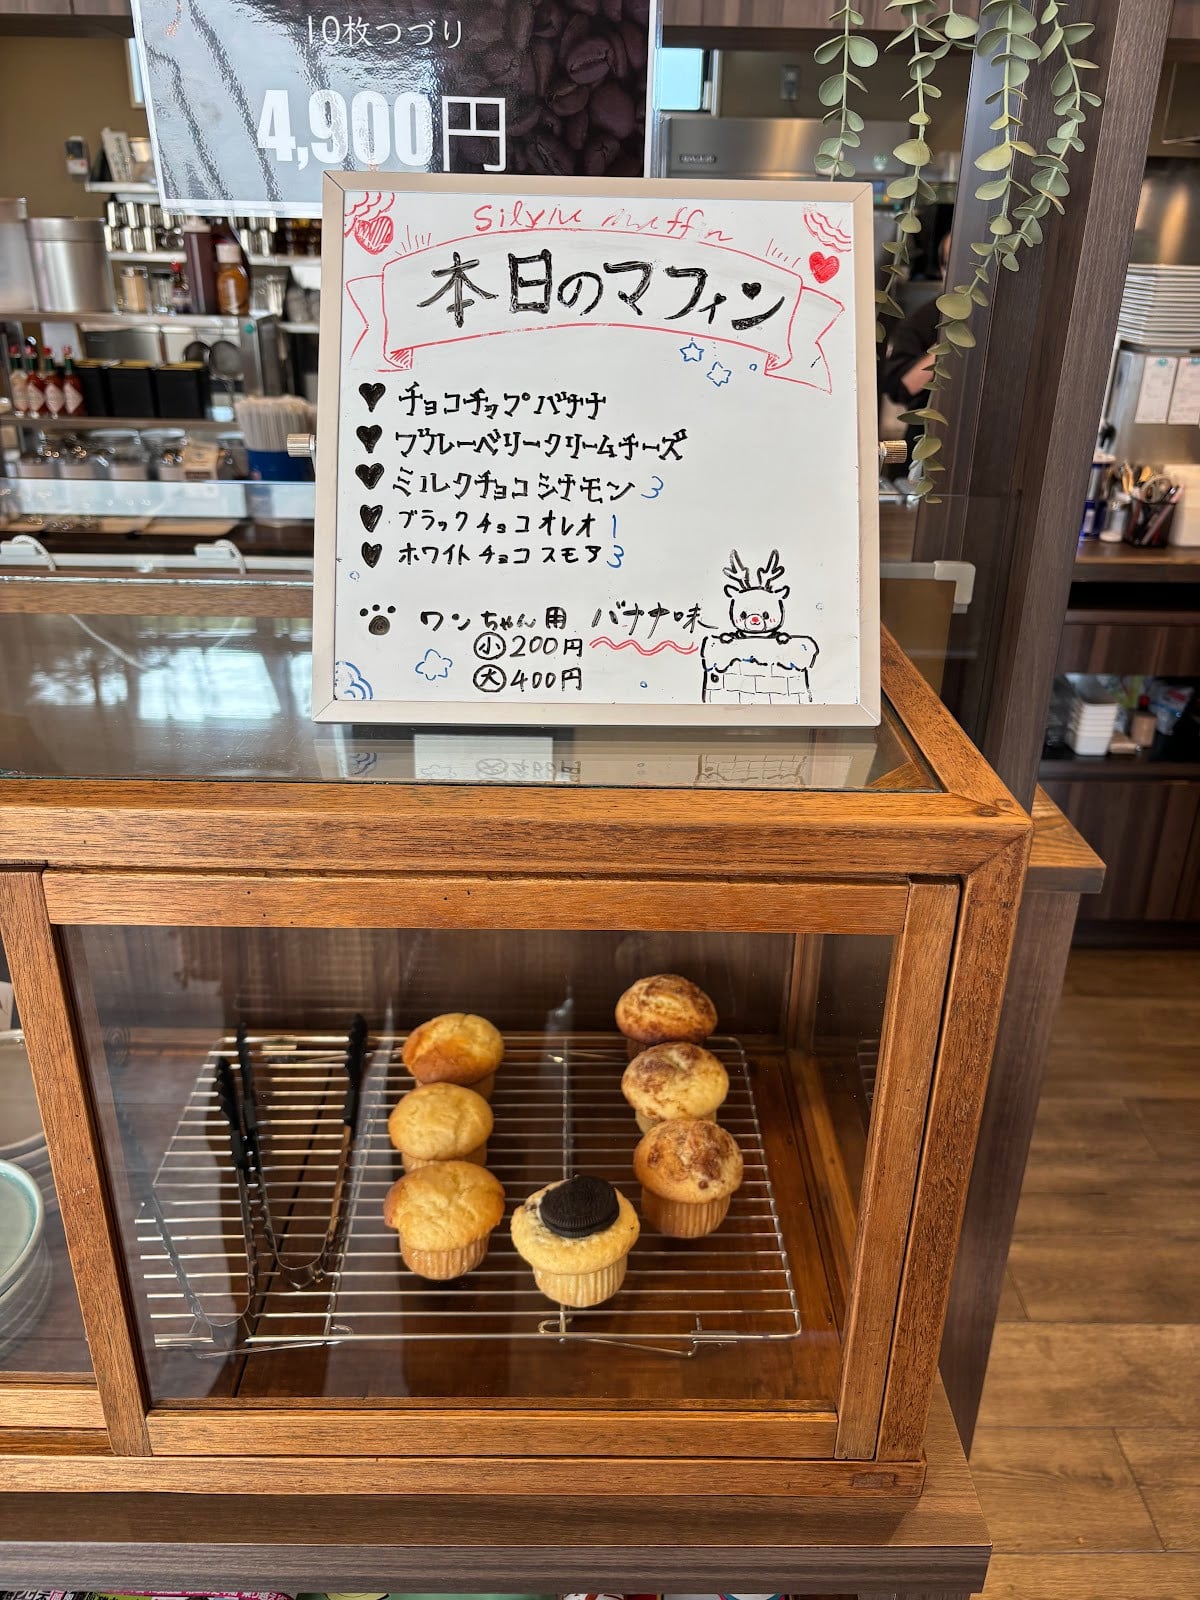 10枚つづり
4,900円
Silvie muffin
本日のマフィン
チョコチップバナナ
ブルーベリークリームチーズ
ミルクチョコシナモン 3
ブラックチョコオレオ 1
ホワイトチョコスモア 3
ワンちゃん用 バナナ味
小 200円
大 400円